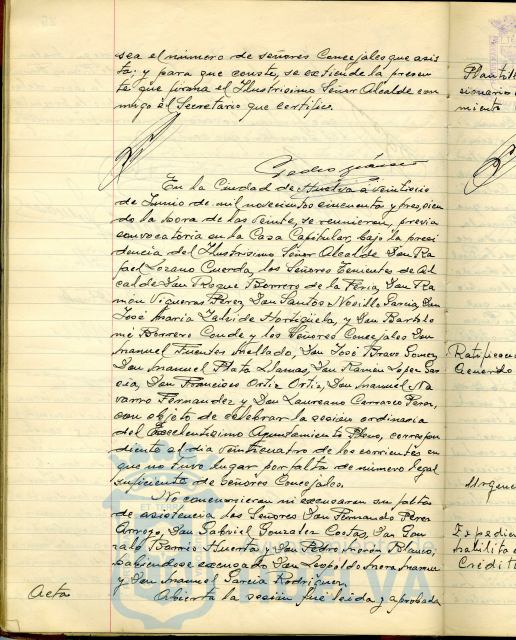 sea el número de señores Concejales que asis
ta; y para que conste, se extiende la presen
te que firma el Ilustrisimo Señor Alcalde con
migo el Secretario que certifico.
Pedro
En la Ciudad de Huelva a veintiseis
de Junio de mil novecientos cincuenta y tres, sien
do la hora de las veinte, se reunieron, previa
convocatoria en la Casa Capitular, bajo la presi
dencia del Ilustrisimo Señor Alcalde Don Ra
fael Lozano Cuerda, los Señores Tenientes de Al
calde Don Roque Borrero de la Feria, Don Ra
món Vigueras Perez, Don Santos Novillo Garcia, Don
José Maria Zalvide Hortigüela, y Don Bartolo
mé Borrero Conde y los Señores Concejales Don
Manuel Fuentes Mellado, Don José Bravo Gomez
Don Manuel Plata Llamas, Don Ramón Lopez Gar
cia, Don Francisco Ortiz Ortiz, Don Manuel Na
varro Fernandez y Don Laureano Carrasco Perez,
con objeto de celebrar la sesión ordinaria
del Excelentisimo Ayuntamiento Pleno, correspon
diente al dia veinticuatro de los corrientes en
que no tuvo lugar por falta de número legal
suficiente de Señores Concejales.
No concurrieron ni excusaron su falta
de asistencia los Señores Don Fernando Perez
Arroyo, Don Gabriel Gonzalez Costas, Don Gon
zalo Barrio Huerta y Don Pedro Blanco;
habiendose excusado Don Leopoldo
y Don Manuel Garcia Rodriguez.
Acta
Abierta la sesión fué leida y aprobada
miento
Acuerdo
Urgenc
Expedien
Crédit
HUELVA